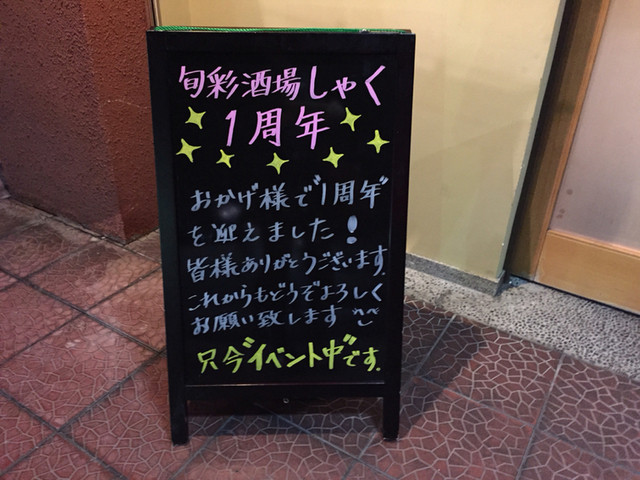 旬彩酒場しゃく
1周年
おかげ様で1周年
を迎えました!
皆様ありがとうございます.
これからもどうぞよろしく
お願い致します
只今イベント中です.